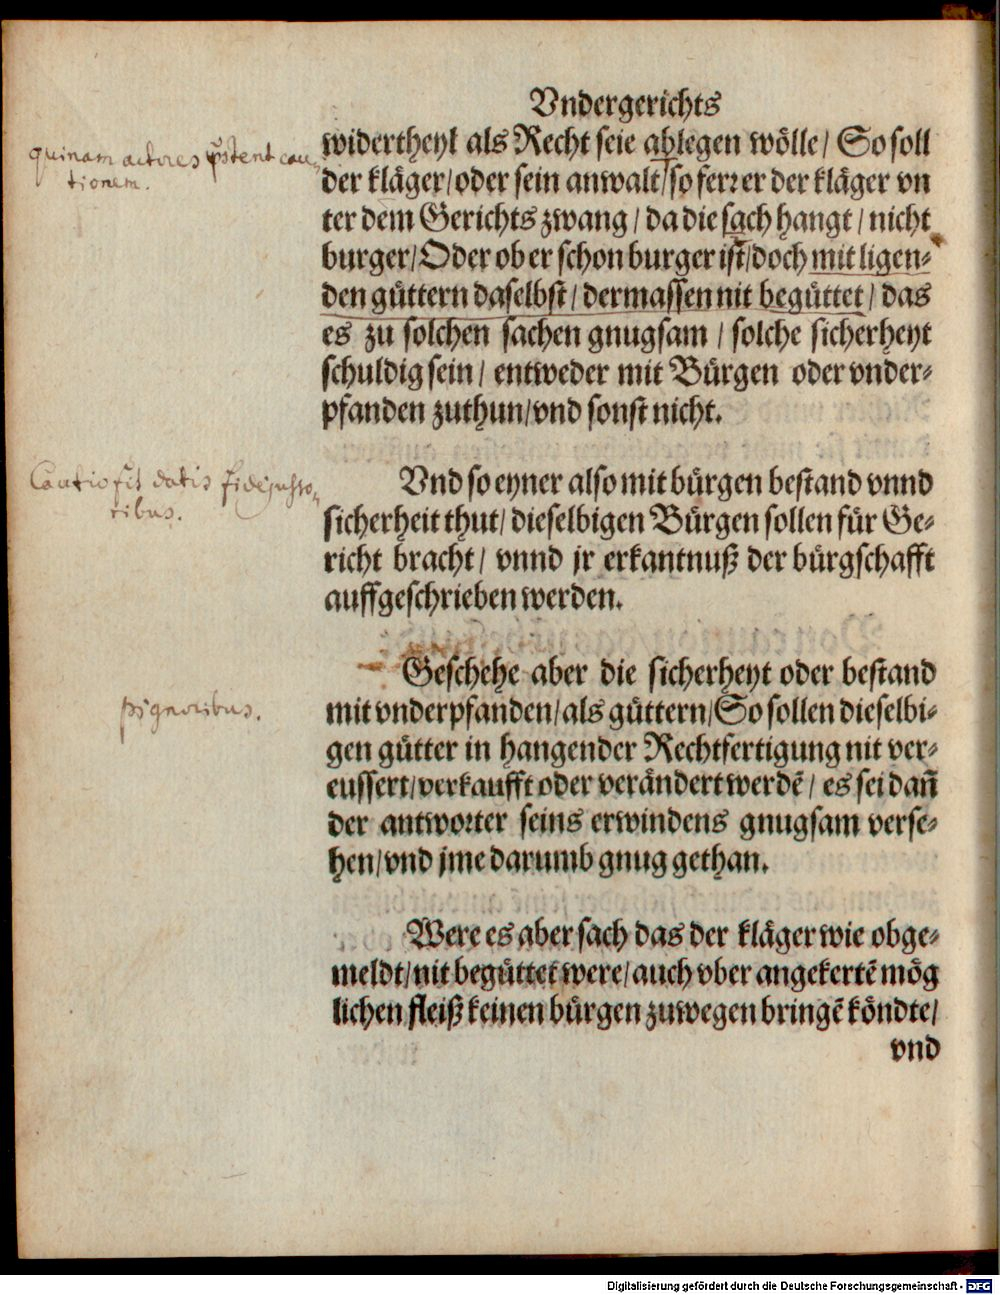 Vndergerichts
widertheyl als Recht seie ablegen wölle/ So soll
der kläger/oder sein anwalt/so ferꝛ er der kläger vn
ter dem Gerichts zwang/ da die sach hangt/ nicht
burger/Oder ob er schon burger ist/doch mit ligen-
den güttern daselbst/ dermassen nit begüttet/ das
es zu solchen sachen gnugsam / solche sicherheyt
schuldig sein/ entweder mit Bürgen oder vnder-
pfanden zuthun/vnd sonst nicht.
quinam actores pstent cau-
tionem.
Vnd so eyner also mit bürgen bestand vnnd
sicherheit thut/ dieselbigen Bürgen sollen für Ge-
richt bracht/ vnnd jr erkantnuß der bürgschafft
auffgeschrieben werden.
Cautio fit datis fidejusso-
ribus.
Geschehe aber die sicherheyt oder bestand
mit vnderpfanden/als güttern/So sollen dieselbi-
gen gütter in hangender Rechtfertigung nit ver-
eussert/verkaufft oder verändert werdẽ/ es sei dañ
der antwoꝛter seins erwindens gnugsam verse-
hen/vnd jme darumb gnug gethan.
pignoribus.
Were es aber sach das der kläger wie obge-
meldt/nit begüttet were/auch vber angekertẽ mög
lichen fleiß keinen bürgen zuwegen bringẽ köndte/
vnd
Digitalisierung gefördert durch die Deutsche Forschungsgemeinschaft - DFG